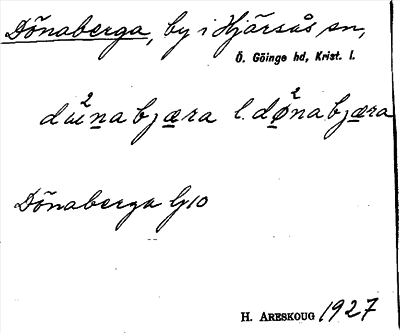 Dönaberga, by i Hjärsås sn,
Ö. Göinge hd, Krist. l.
dæ²nabjæra l. dø²nabjæra
Dönaberga G10
H. ARESKOUG 1927